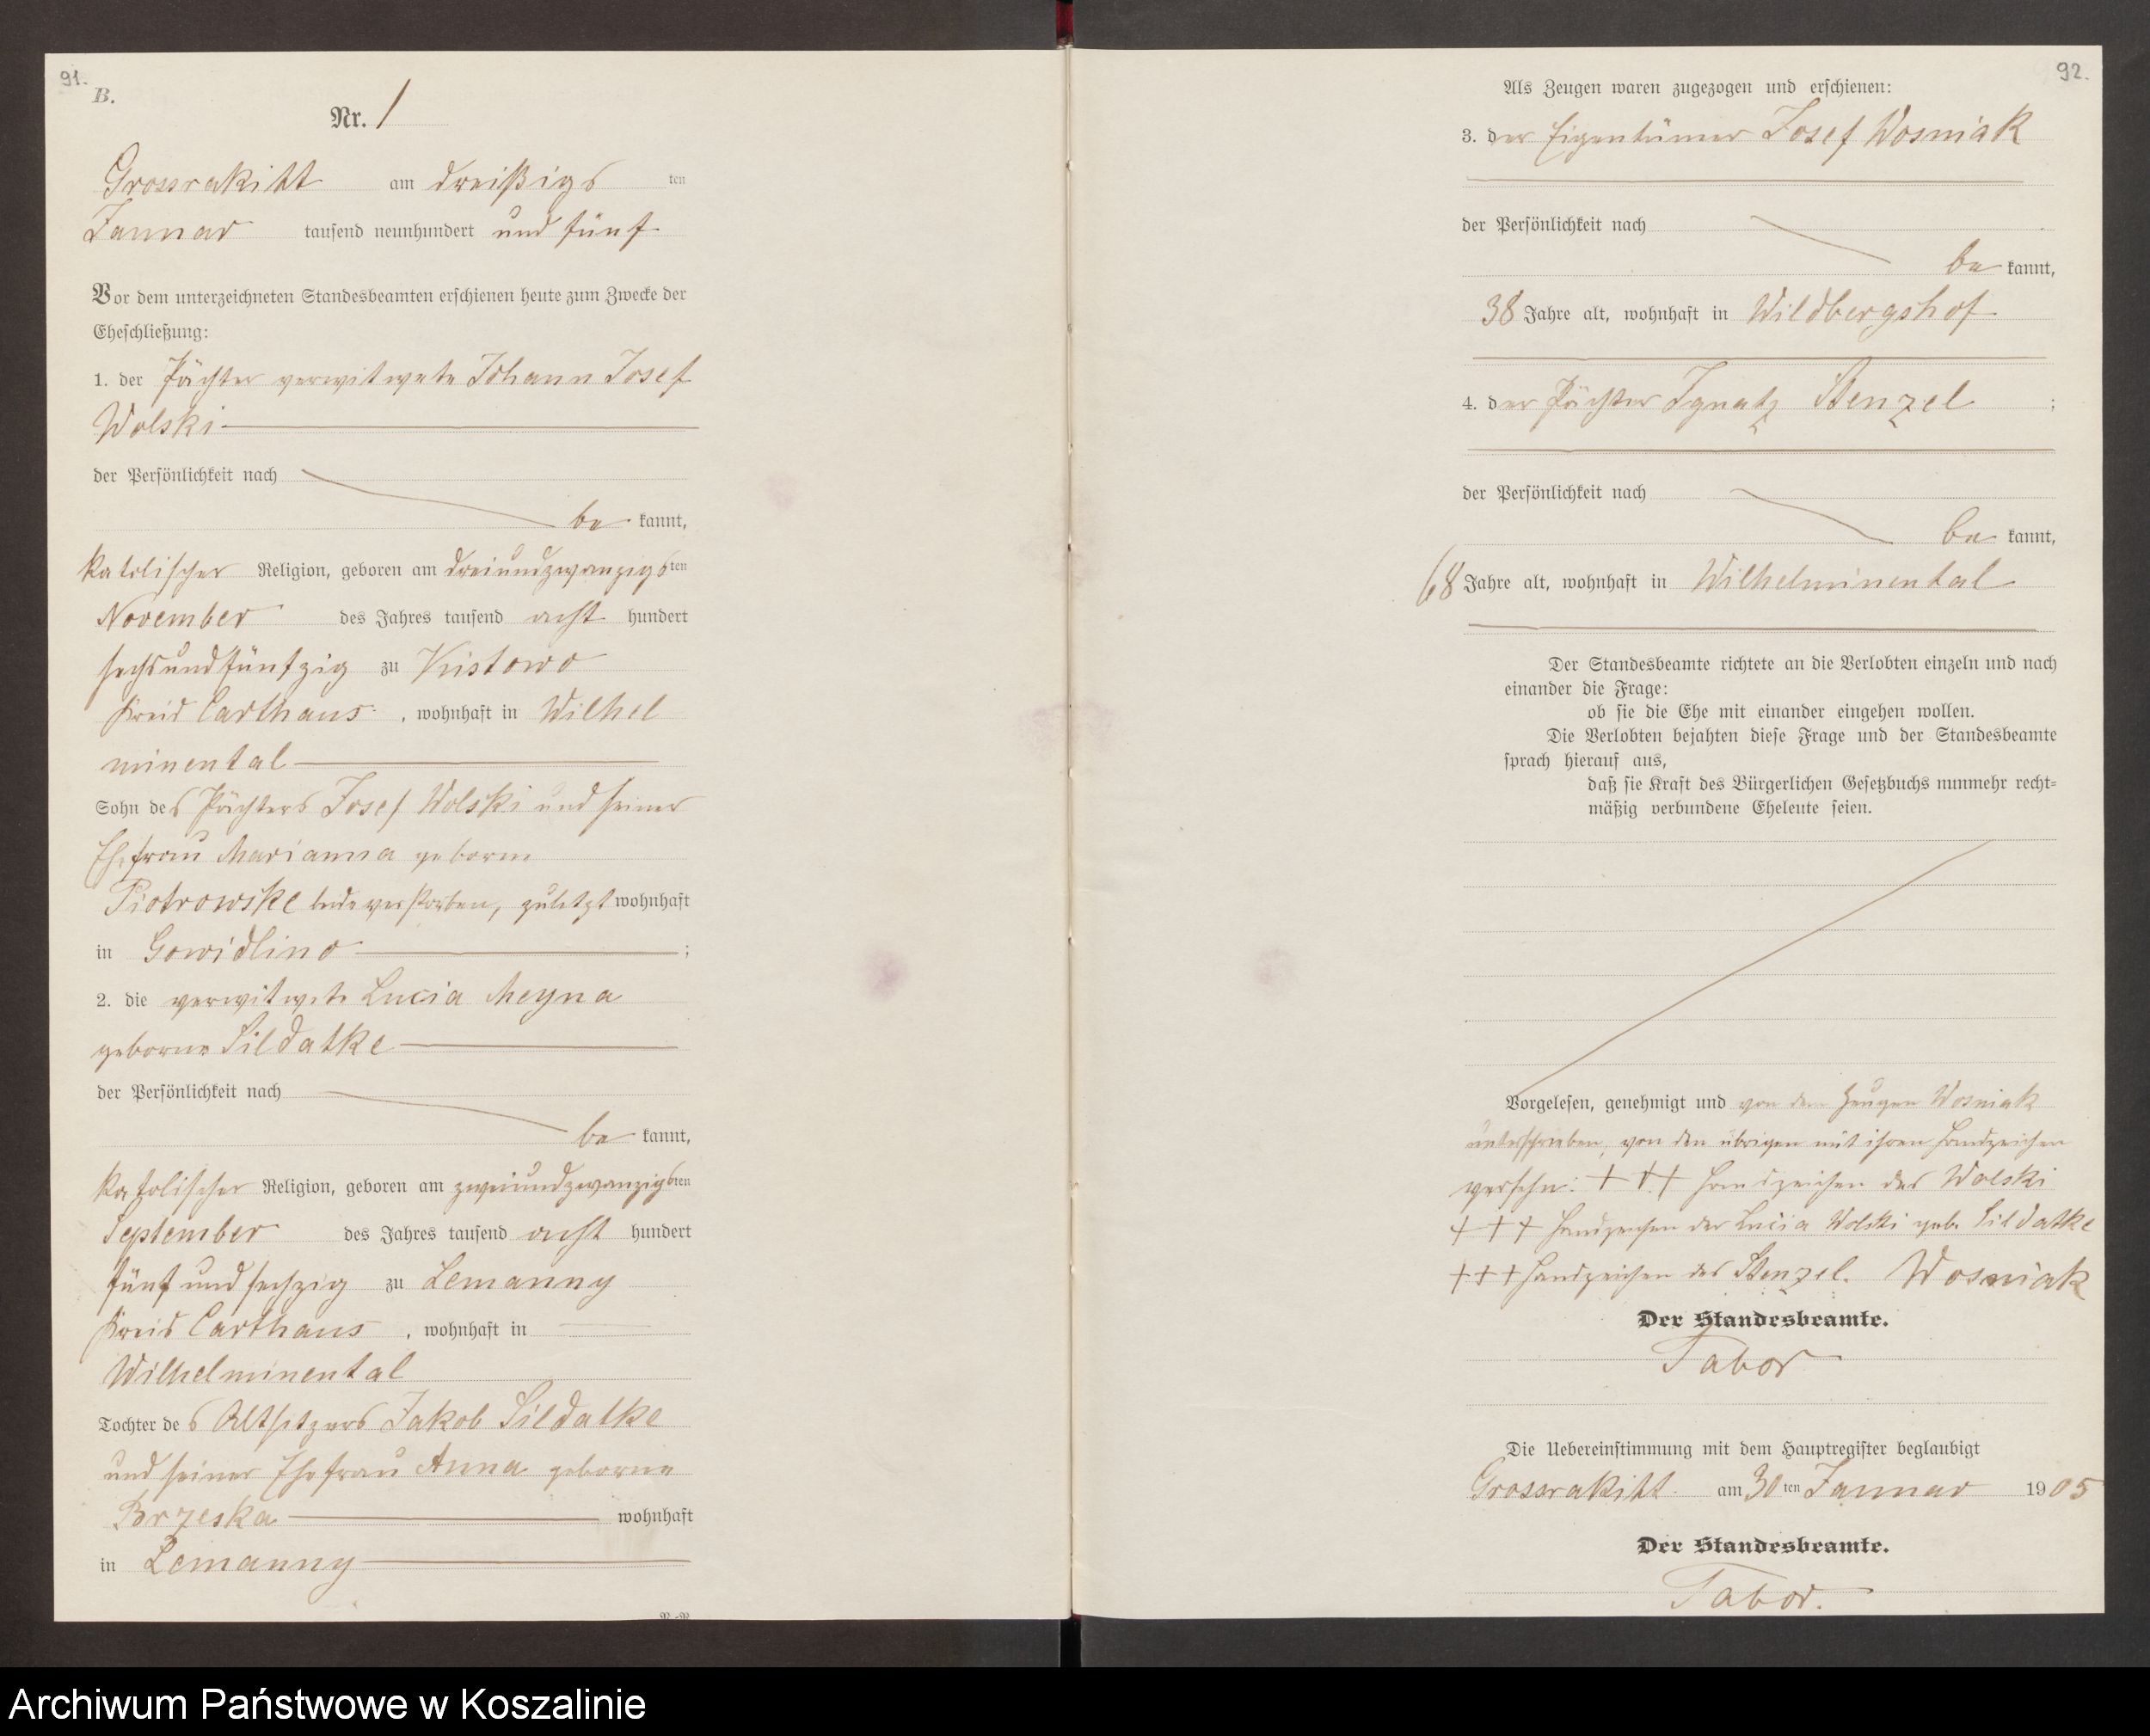 91.
B.
Nr. 1
Grossrakitt am dreißigsten
Januar tausend neunhundert und fünf
Vor dem unterzeichneten Standesbeamten erschienen heute zum Zwecke der
Eheschließung:
1. der Pächter verwitwete Johann Josef
Wolski
der Persönlichkeit nach
bekannt,
katolischer Religion, geboren am dreiundzwanzigsten
November des Jahres tausend acht hundert
sechsundfünfzig zu Kistowo
Kreis Carthaus, wohnhaft in Wilhel
minental
Sohn des Pächters Josef Wolski und seiner
Ehefrau Marianna geborne
Piotrowske beide verstorben, zuletzt wohnhaft
in Gowidlino ;
2. die verwitwete Lucia Meyna
geborne Sildatke
der Persönlichkeit nach
bekannt,
katolischer Religion, geboren am zweiundzwanzigsten
September des Jahres tausend acht hundert
fünf und sechzig zu Lemanny
Kreis Carthaus, wohnhaft in
Wilhelminental
Tochter des Altsitzers Jakob Sildatke
und seiner Ehefrau Anna geborne
Brzeska wohnhaft
in Lemanny
92.
Als Zeugen waren zugezogen und erschienen:
3. der Eigentümer Josef Wosniak
der Persönlichkeit nach
bekannt,
38 Jahre alt, wohnhaft in Wildbergshof
4. der Pächter Ignatz Stenzel ;
der Persönlichkeit nach
bekannt,
68 Jahre alt, wohnhaft in Wilhelminental
Der Standesbeamte richtete an die Verlobten einzeln und nach
einander die Frage:
ob sie die Ehe mit einander eingehen wollen.
Die Verlobten bejahten diese Frage und der Standesbeamte
sprach hierauf aus,
daß sie Kraft des Bürgerlichen Gesetzbuchs nunmehr recht=
mäßig verbundene Eheleute seien.
Vorgelesen, genehmigt und von dem Zeugen Wosniak
unterschrieben, von den übrigen mit ihren Handzeichen
versehn: + + + Handzeichen des Wolski
+ + + Handzeichen der Lucia Wolski geb. Sildatke
+ + + Handzeichen des Stenzel. Wosniak
Der Standesbeamte.
Tabor
Die Uebereinstimmung mit dem Hauptregister beglaubigt
Grossrakitt am 30ten Januar 1905
Der Standesbeamte.
Tabor.
Archiwum Państwowe w Koszalinie